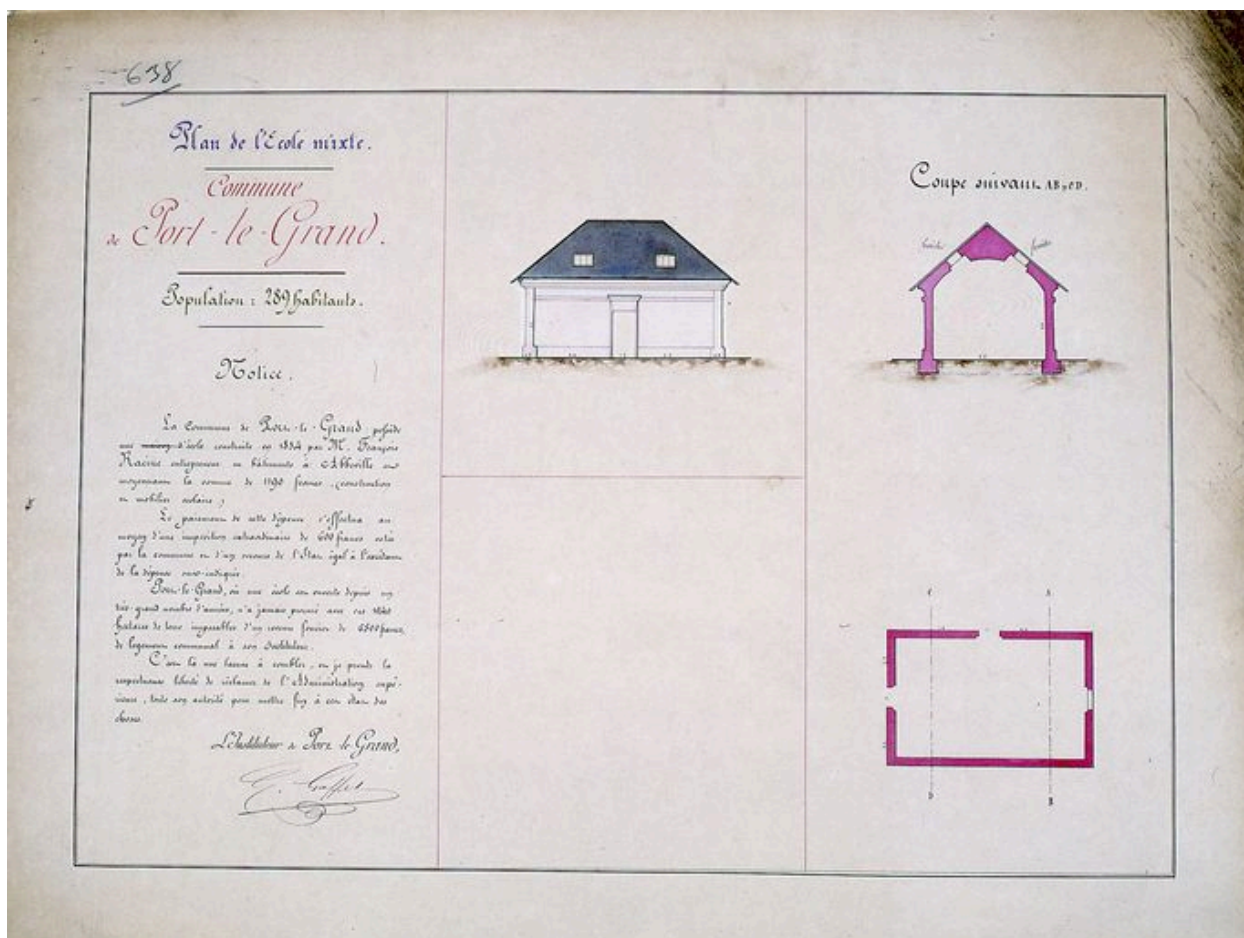 638
Plan de l'Ecole mixte.
Commune
de Port-le-Grand.
Population : 289 habitants.
Notice.
La Commune de Port-le-Grand possède
une maison d'école construite en 1834 par M. François
Racine entrepreneur en bâtiments à Abbeville
moyennant la somme de 1190 francs, (construction
et mobilier scolaire)
Le paiement de cette dépense s'effectua au
moyen d'une imposition extraordinaire de 600 francs votée
par la commune et d'un secours de l'Etat égal à l'excédant
de la dépense sus-indiquée.
Port-le-Grand, où une école est ouverte depuis un
très-grand nombre d'années, n'a jamais procuré avec ses
hectares de terre imposables d'un revenu foncier de francs,
de logement communal à son Instituteur.
C'est là une lacune à combler, et je prends la
respectueuse liberté de réclamer de l'Administration supé-
rieure, toute son autorité pour mettre fin à cet état des
choses.
L'Instituteur de Port-le-Grand,
Coupe suivant AB, CD.
C A
D B